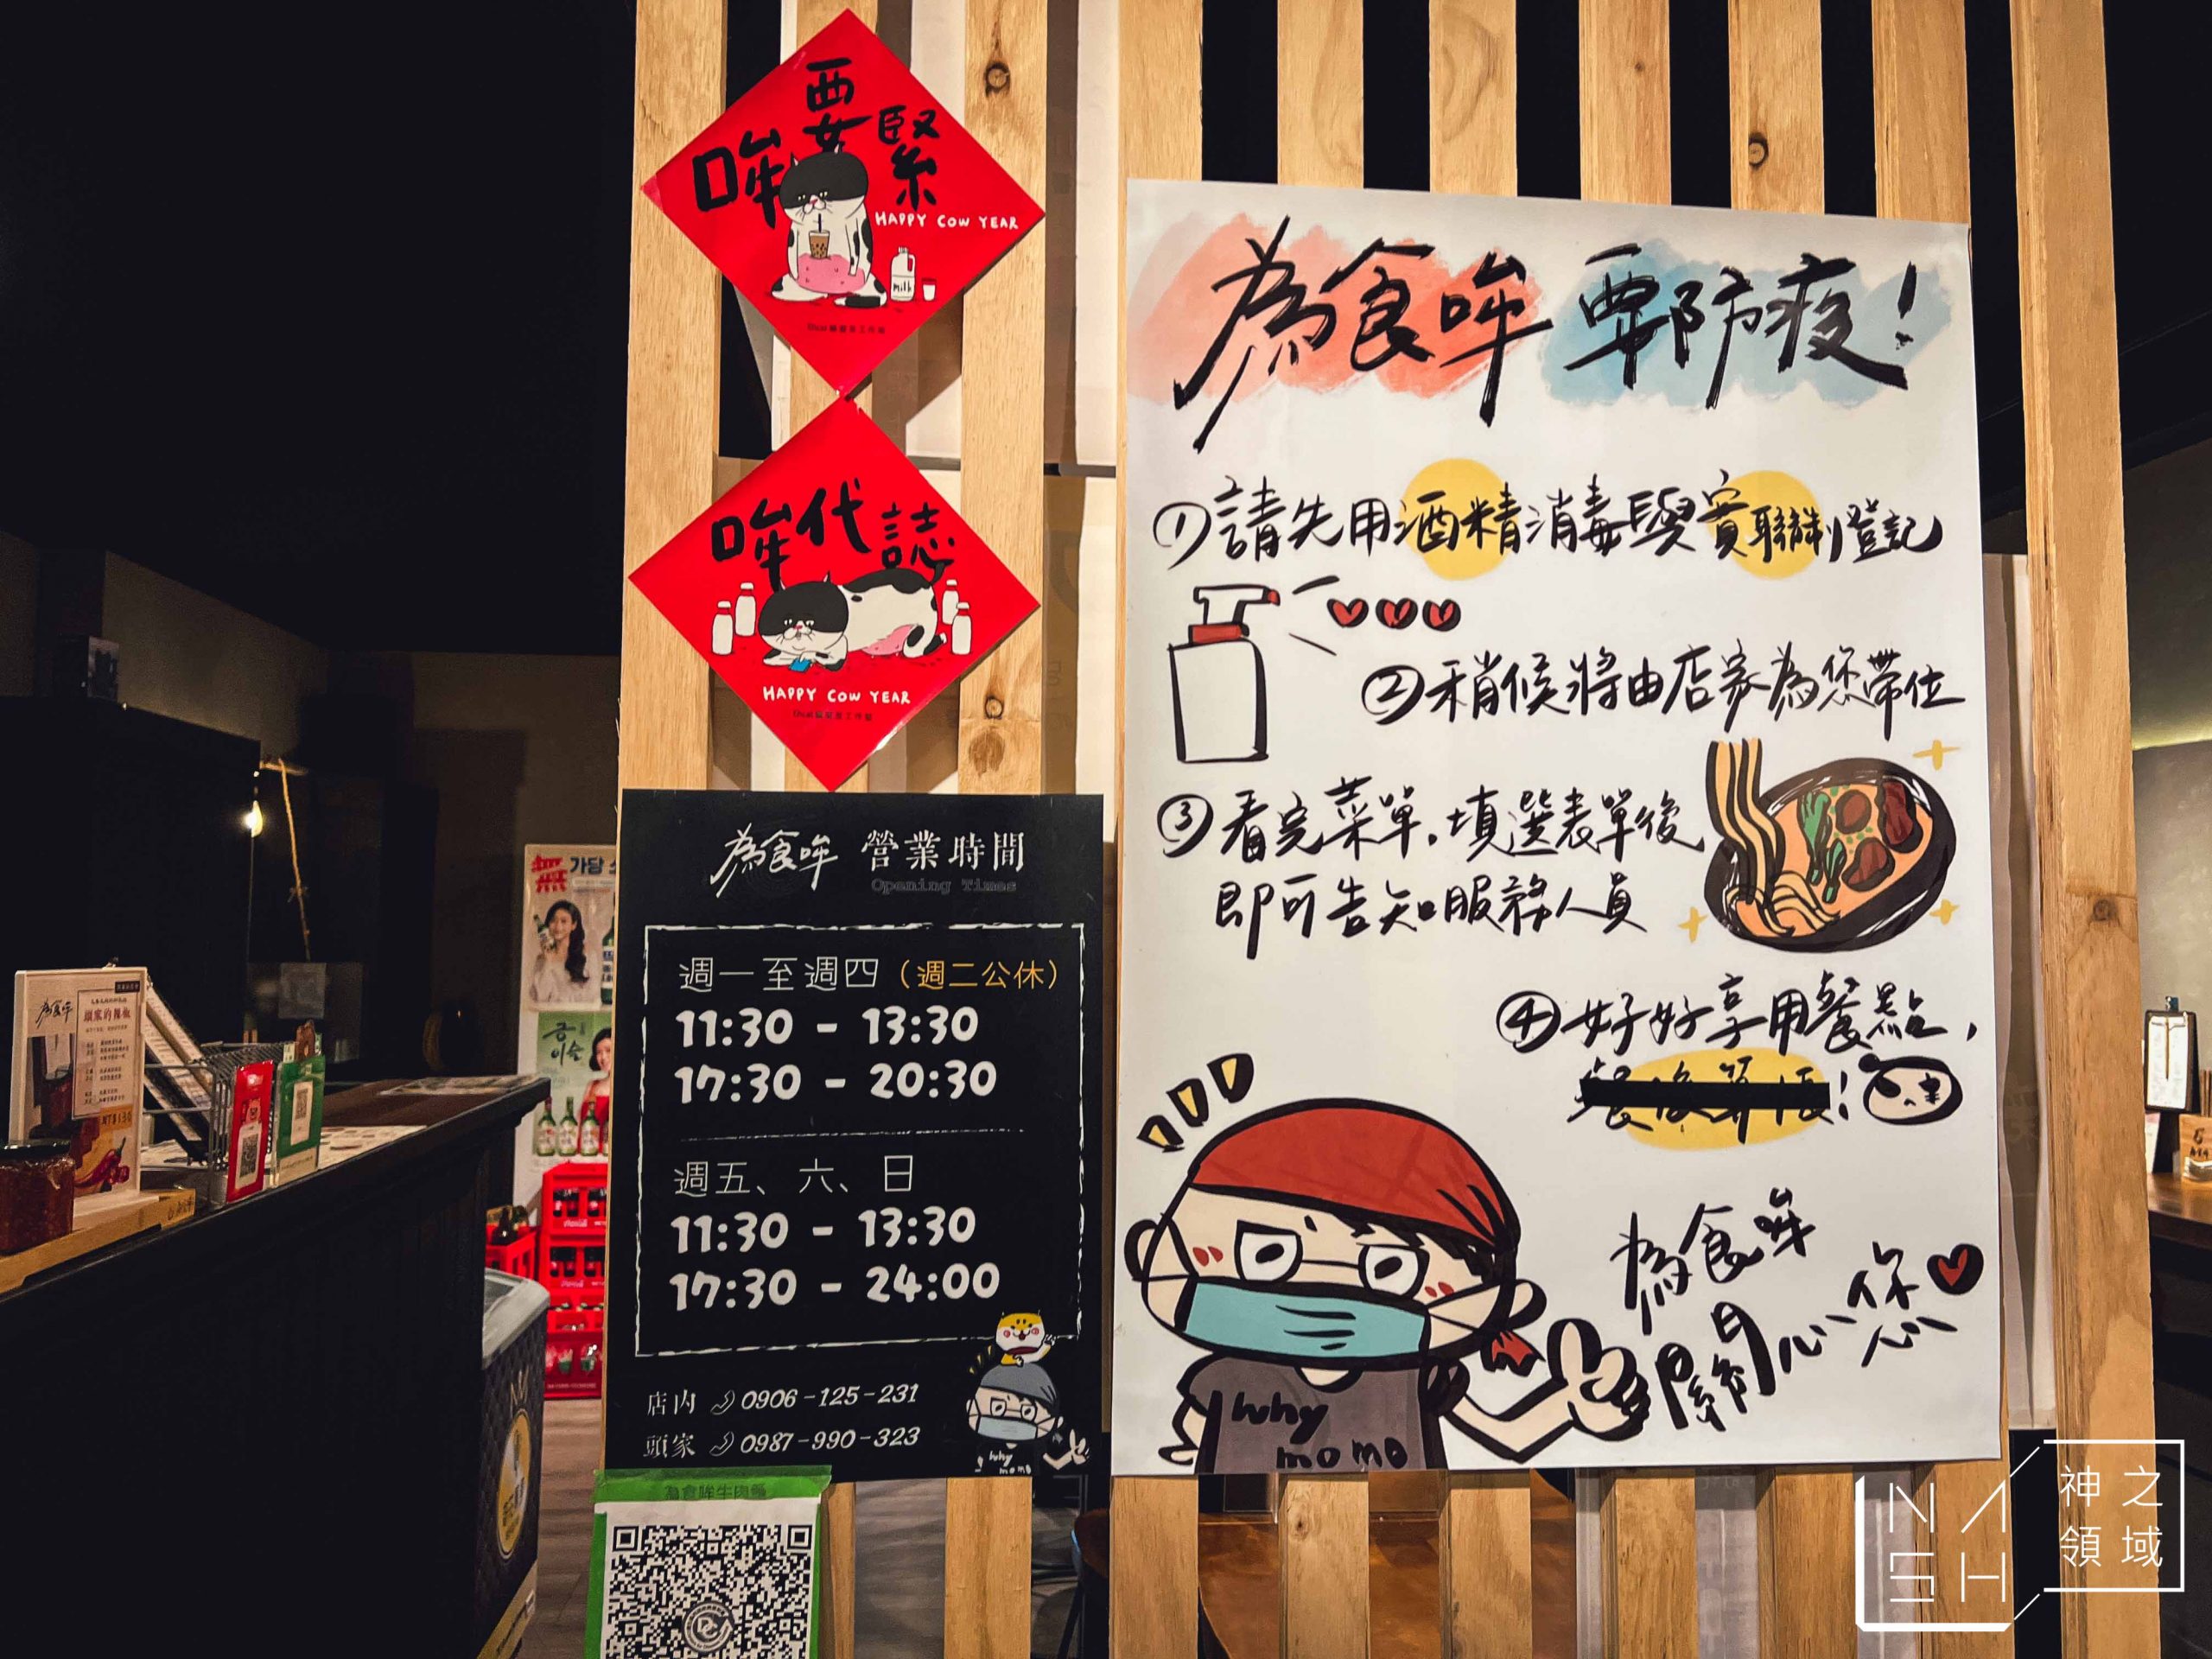 哞要緊
HAPPY COW YEAR
milk
哞代誌
HAPPY COW YEAR
為食哞 營業時間
Opening Times
週一至週四（週二公休）
11:30 - 13:30
17:30 - 20:30
週五、六、日
11:30 - 13:30
17:30 - 24:00
店內 0906-125-231
頭家 0987-990-323
why
momo
為食哞牛肉麵
為食哞 要防疫！
①請先用酒精消毒與實聯制登記
②稍候將由店家為您帶位
③看完菜單，填選表單後
即可告知服務人員
④好好享用餐點，
為食哞
關心您
why
momo
無 가당
금
이슬
為食哞
頭家的辣椒
NT$130
NASH
神之
領域